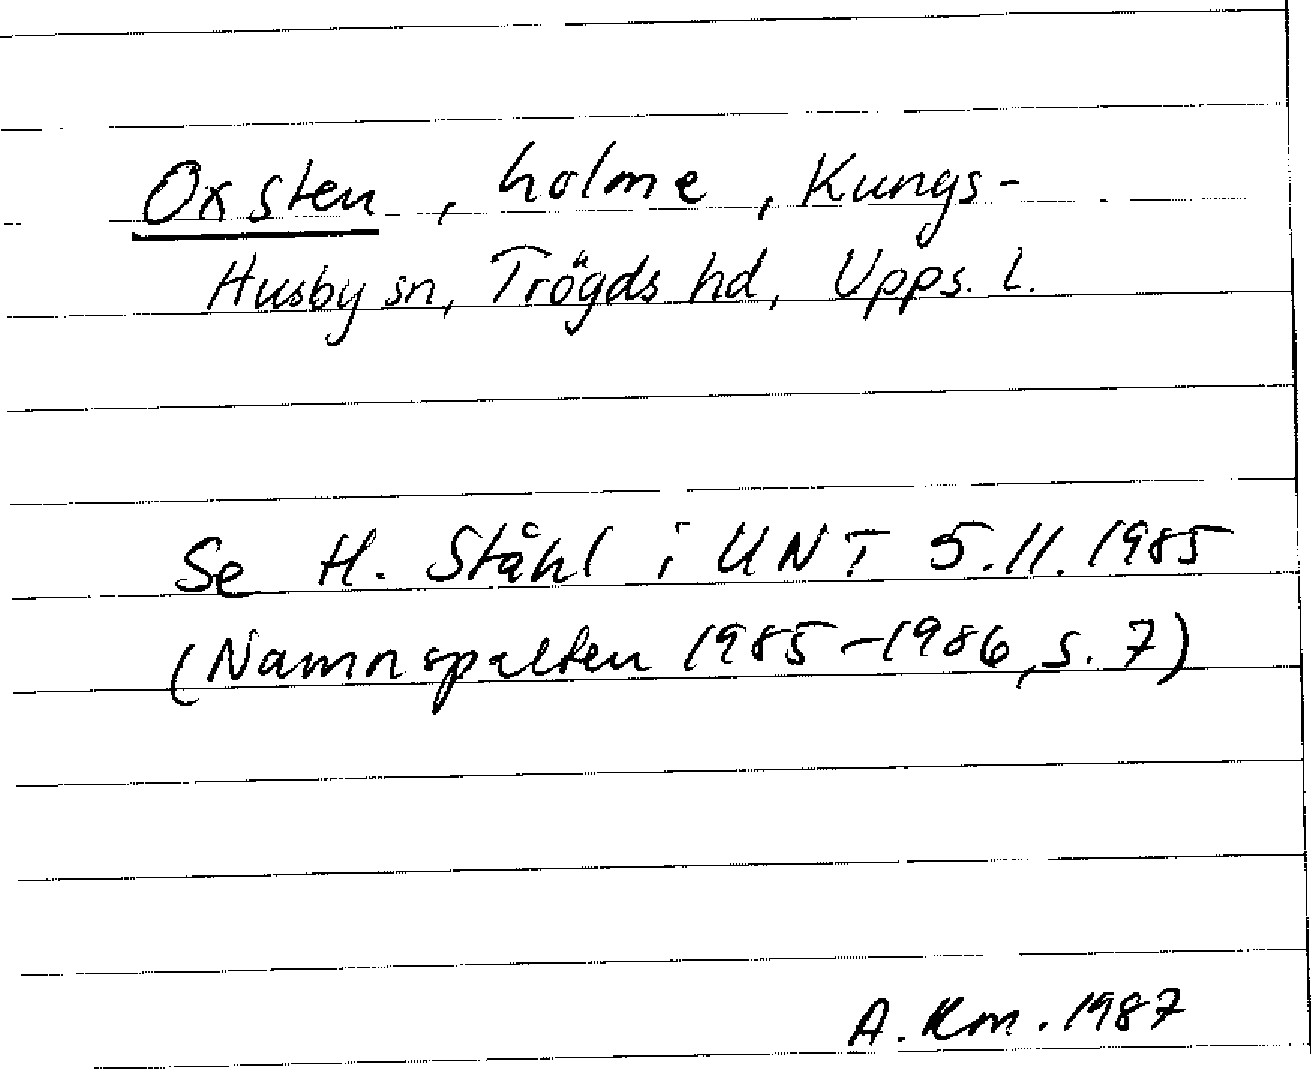 Oxsten, holme, Kungs-
Husby sn, Trögds hd, Upps. l.
Se H. Ståhl i UNT 5.11.1985
(Namnspalten 1985-1986, s. 7)
A. Km. 1987